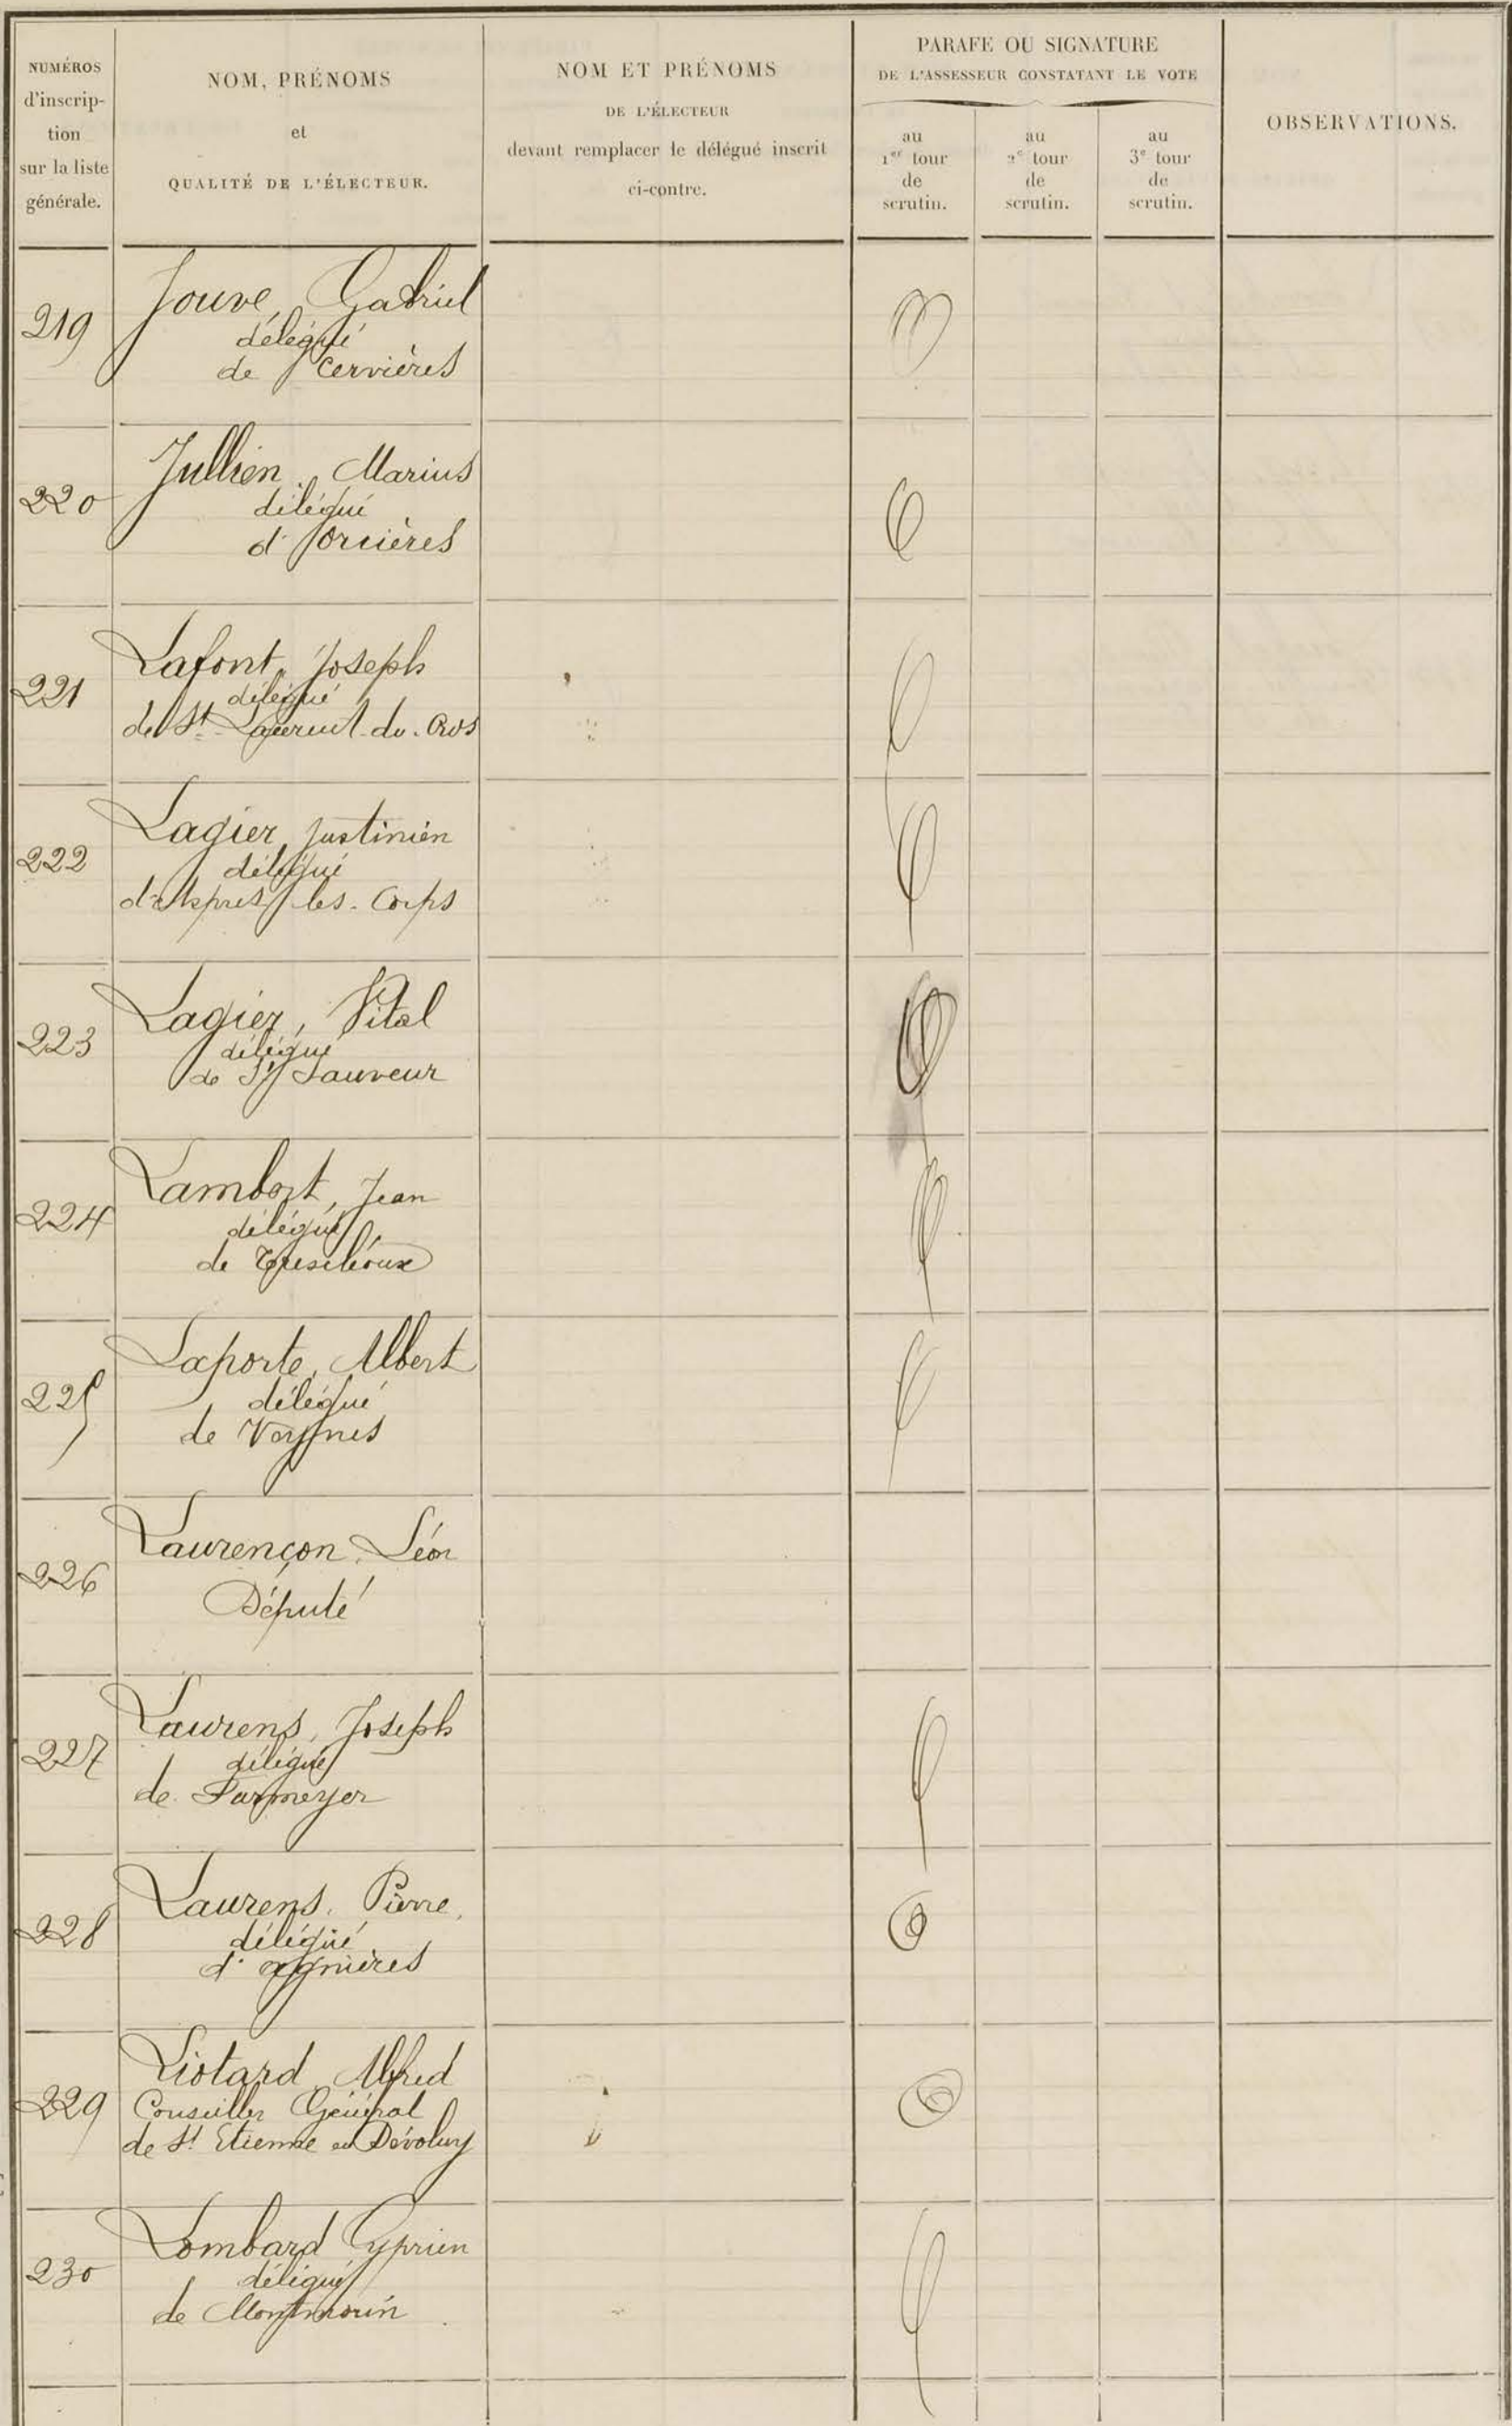 NUMÉROS
d'inscrip-
tion
sur la liste
générale.
NOM, PRÉNOMS
et
QUALITÉ DE L'ÉLECTEUR.
NOM ET PRÉNOMS
DE L'ÉLECTEUR
devant remplacer le délégué inscrit
ci-contre.
PARAFE OU SIGNATURE
DE L'ASSESSEUR CONSTATANT LE VOTE
au
1er tour
de
scrutin.
au
2e tour
de
scrutin.
au
3e tour
de
scrutin.
OBSERVATIONS.
219
Jouve, Gabriel
délégué
de Cervières
220
Jullien, Marius
délégué
d'Orcières
221
Lafont, Joseph
délégué
de St Laurent-du-Cros
222
Lagier, Justinien
délégué
d'Aspres-les-Corps
223
Lagier, Vital
délégué
de St Sauveur
224
Lambert, Jean
délégué
de Trescléoux
225
Laporte, Albert
délégué
de Veynes
226
Laurençon, Léon
Député
227
Laurens, Joseph
délégué
de Furmeyer
228
Laurens, Pierre,
délégué
d'Agnières
229
Liotard Alfred
Conseiller Général
de St Etienne en Dévoluy
230
Lombard Cyprien
délégué
de Montmorin